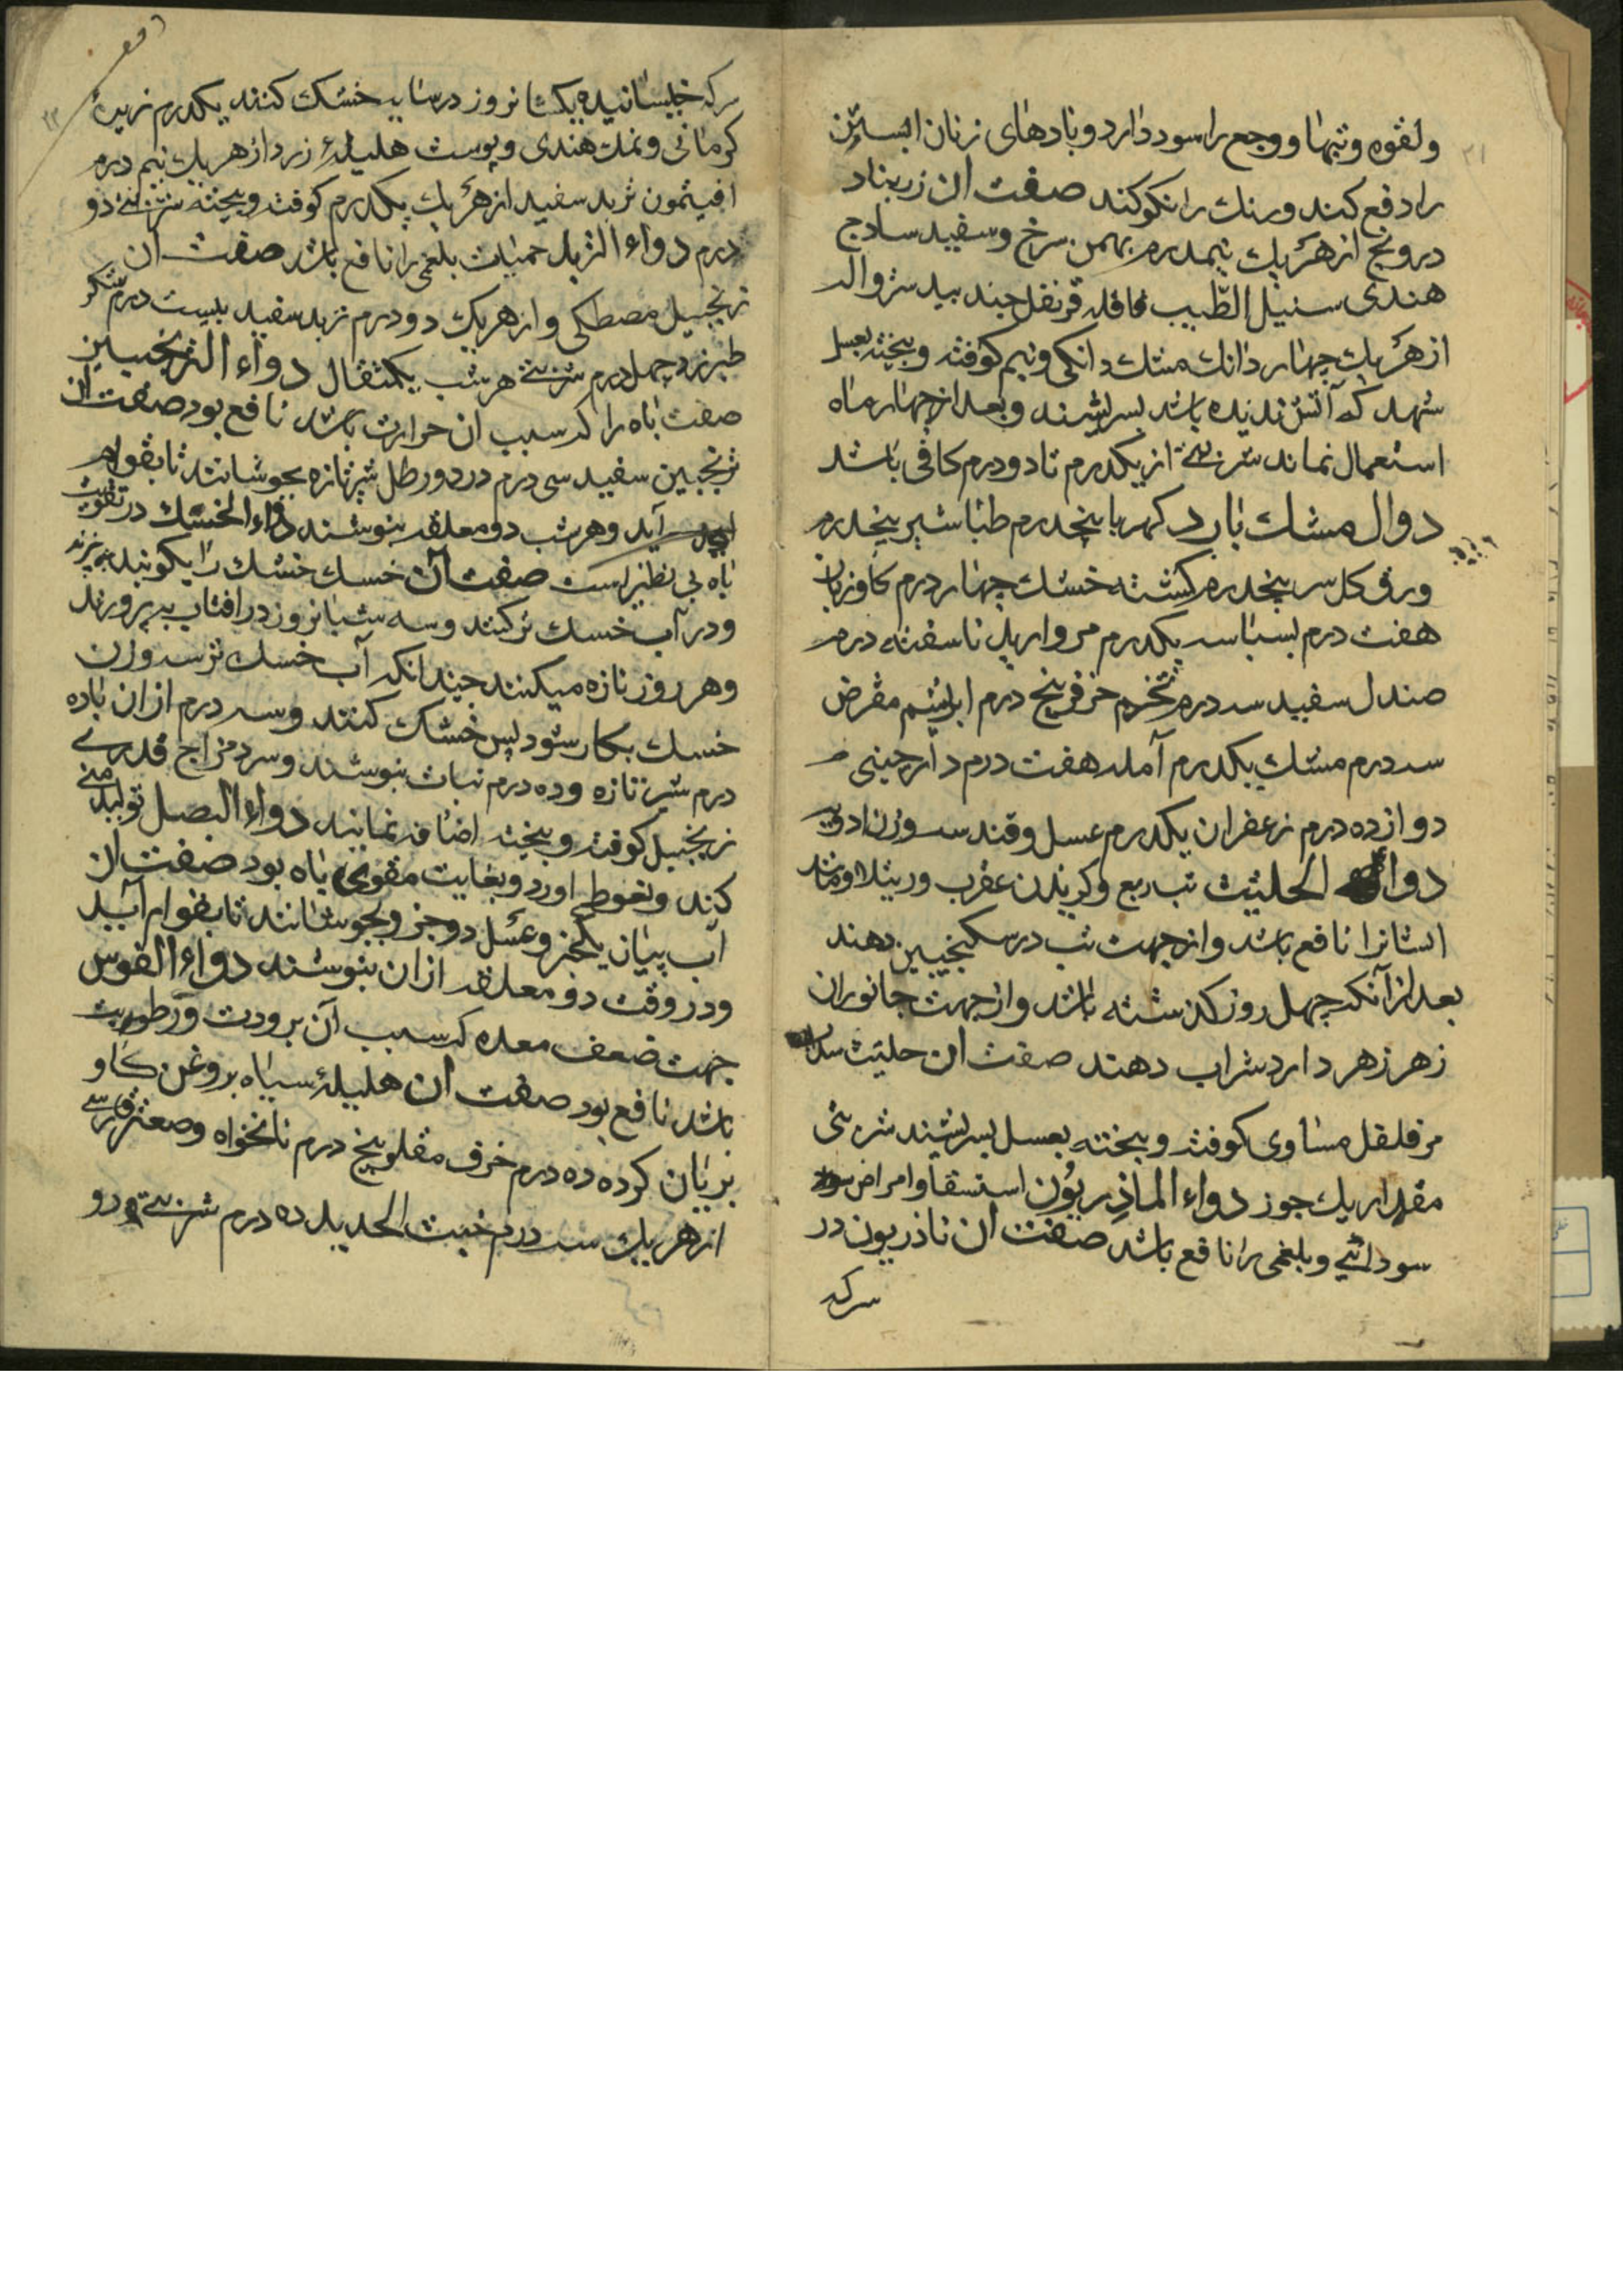 ولقوه و تبها و وجع را سود دارد و بادهای زنان ابستن
را دفع کند و رنك را نکو کند صفت ان زرنباد
درونج از هر يك نیمدرم بهمن سرخ و سفید سادج
هندی سنبل الطیب قاقله قرنفل جند بیدستر واله
از هر يك چهار دانك مشك دانکی و نیم کوفته و بیخته بعسل
شهد که آتش ندیده باشد بسریشند و بعد از چهار ماه
استعمال نماند شربتی از یکدرم تا دو درم کافی باشد
دوال مشك بارد کهربا پنجدرم طباشیر پنجدرم
ورق کل سر پنجدرم کشنه خشك چهار درم کاوزبان
هفت درم بسباسه یکدرم مروارید ناسفته درم
صندل سفید سه درم تخم خرفه پنج درم ابریشم مقرض
سه درم مشك یکدرم آمله هفت درم دارچینی
دوازده درم زعفران یکدرم عسل و قند سه وزن ادویه
دوا الحلتیت تب ربع و کزیدن عقرب و رتیلا و مانند
ایشانرا نافع باشد و از جهت تب در سکنجبین دهند
بعد از آنکه چهل روز کذشته باشد و از جهت جانوران
زهر زهر دارد شراب دهند صفت ان حلتیت سداب
مر فلفل مساوی کوفته و بیخته بعسل بسریشند شربتی
مقدار يك جوز دواء الماذریون استسقا و امراض
سودائی و بلغمی را نافع باشد صفت ان ناذریون در
سرکه
سرکه خیسانیده یکشانروز در سایه خشك کنند یکدرم زیرۀ
کرمانی و نمك هندی و پوست هلیلۀ زرد از هر يك نیم درم
افیتمون تربد سفید از هر يك یکدرم کوفته و بیخته شربتی دو
درم دواء التربد حمیات بلغمی را نافع باشد صفت ان
زنجبیل مصطکی و از هر يك دو درم تربد سفید بیست درم شکر
طبرزد چهل درم شربتی هر شب یکمثقال دواء الترنجبین
صفت باه را که سبب ان حرارت باشد نافع بود صفت ان
ترنجبین سفید سی درم در دو رطل شیر تازه بجوشانند تا بقوام
آید و هر شب دو معلقه بنوشند دواء الخسك در تقویت
باه بی نظیر است صفت آن خسك خشك را بکوبند و بپزند
و در آب خسك تر کنند و سه شبانروز در افتاب بپرورند
و هر روز تازه میکنند چندانکه آب خسك تر سه وزن
خسك بکار شود پس خشك کنند و سه درم از ان باده
درم شیر تازه و ده درم نبات بنوشند و سرد مزاج قدری
زنجبیل کوفته و بیخته اضافه نمایند دواء البصل تولید منی
کند و نعوط اورد و بغایت مقوی باه بود صفت ان
آب پیاز یکجز و عسل دو جز و بجوشانند تا بقوام آید
و در وقت دو معلقه از ان بنوشند دواء القوس
جهت ضعف معده که سبب آن برودت و رطوبت
باشد نافع بود صفت ان هلیلۀ سیاه بروغن کاو
بریان کرده ده درم خرف مقلو پنج درم نانخواه و صعتر فارسی
از هر يك سه درم خبث الحدید ده درم شربتی دو